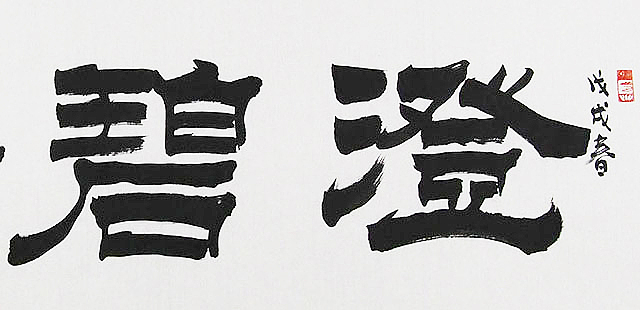 戊戌春
澄碧